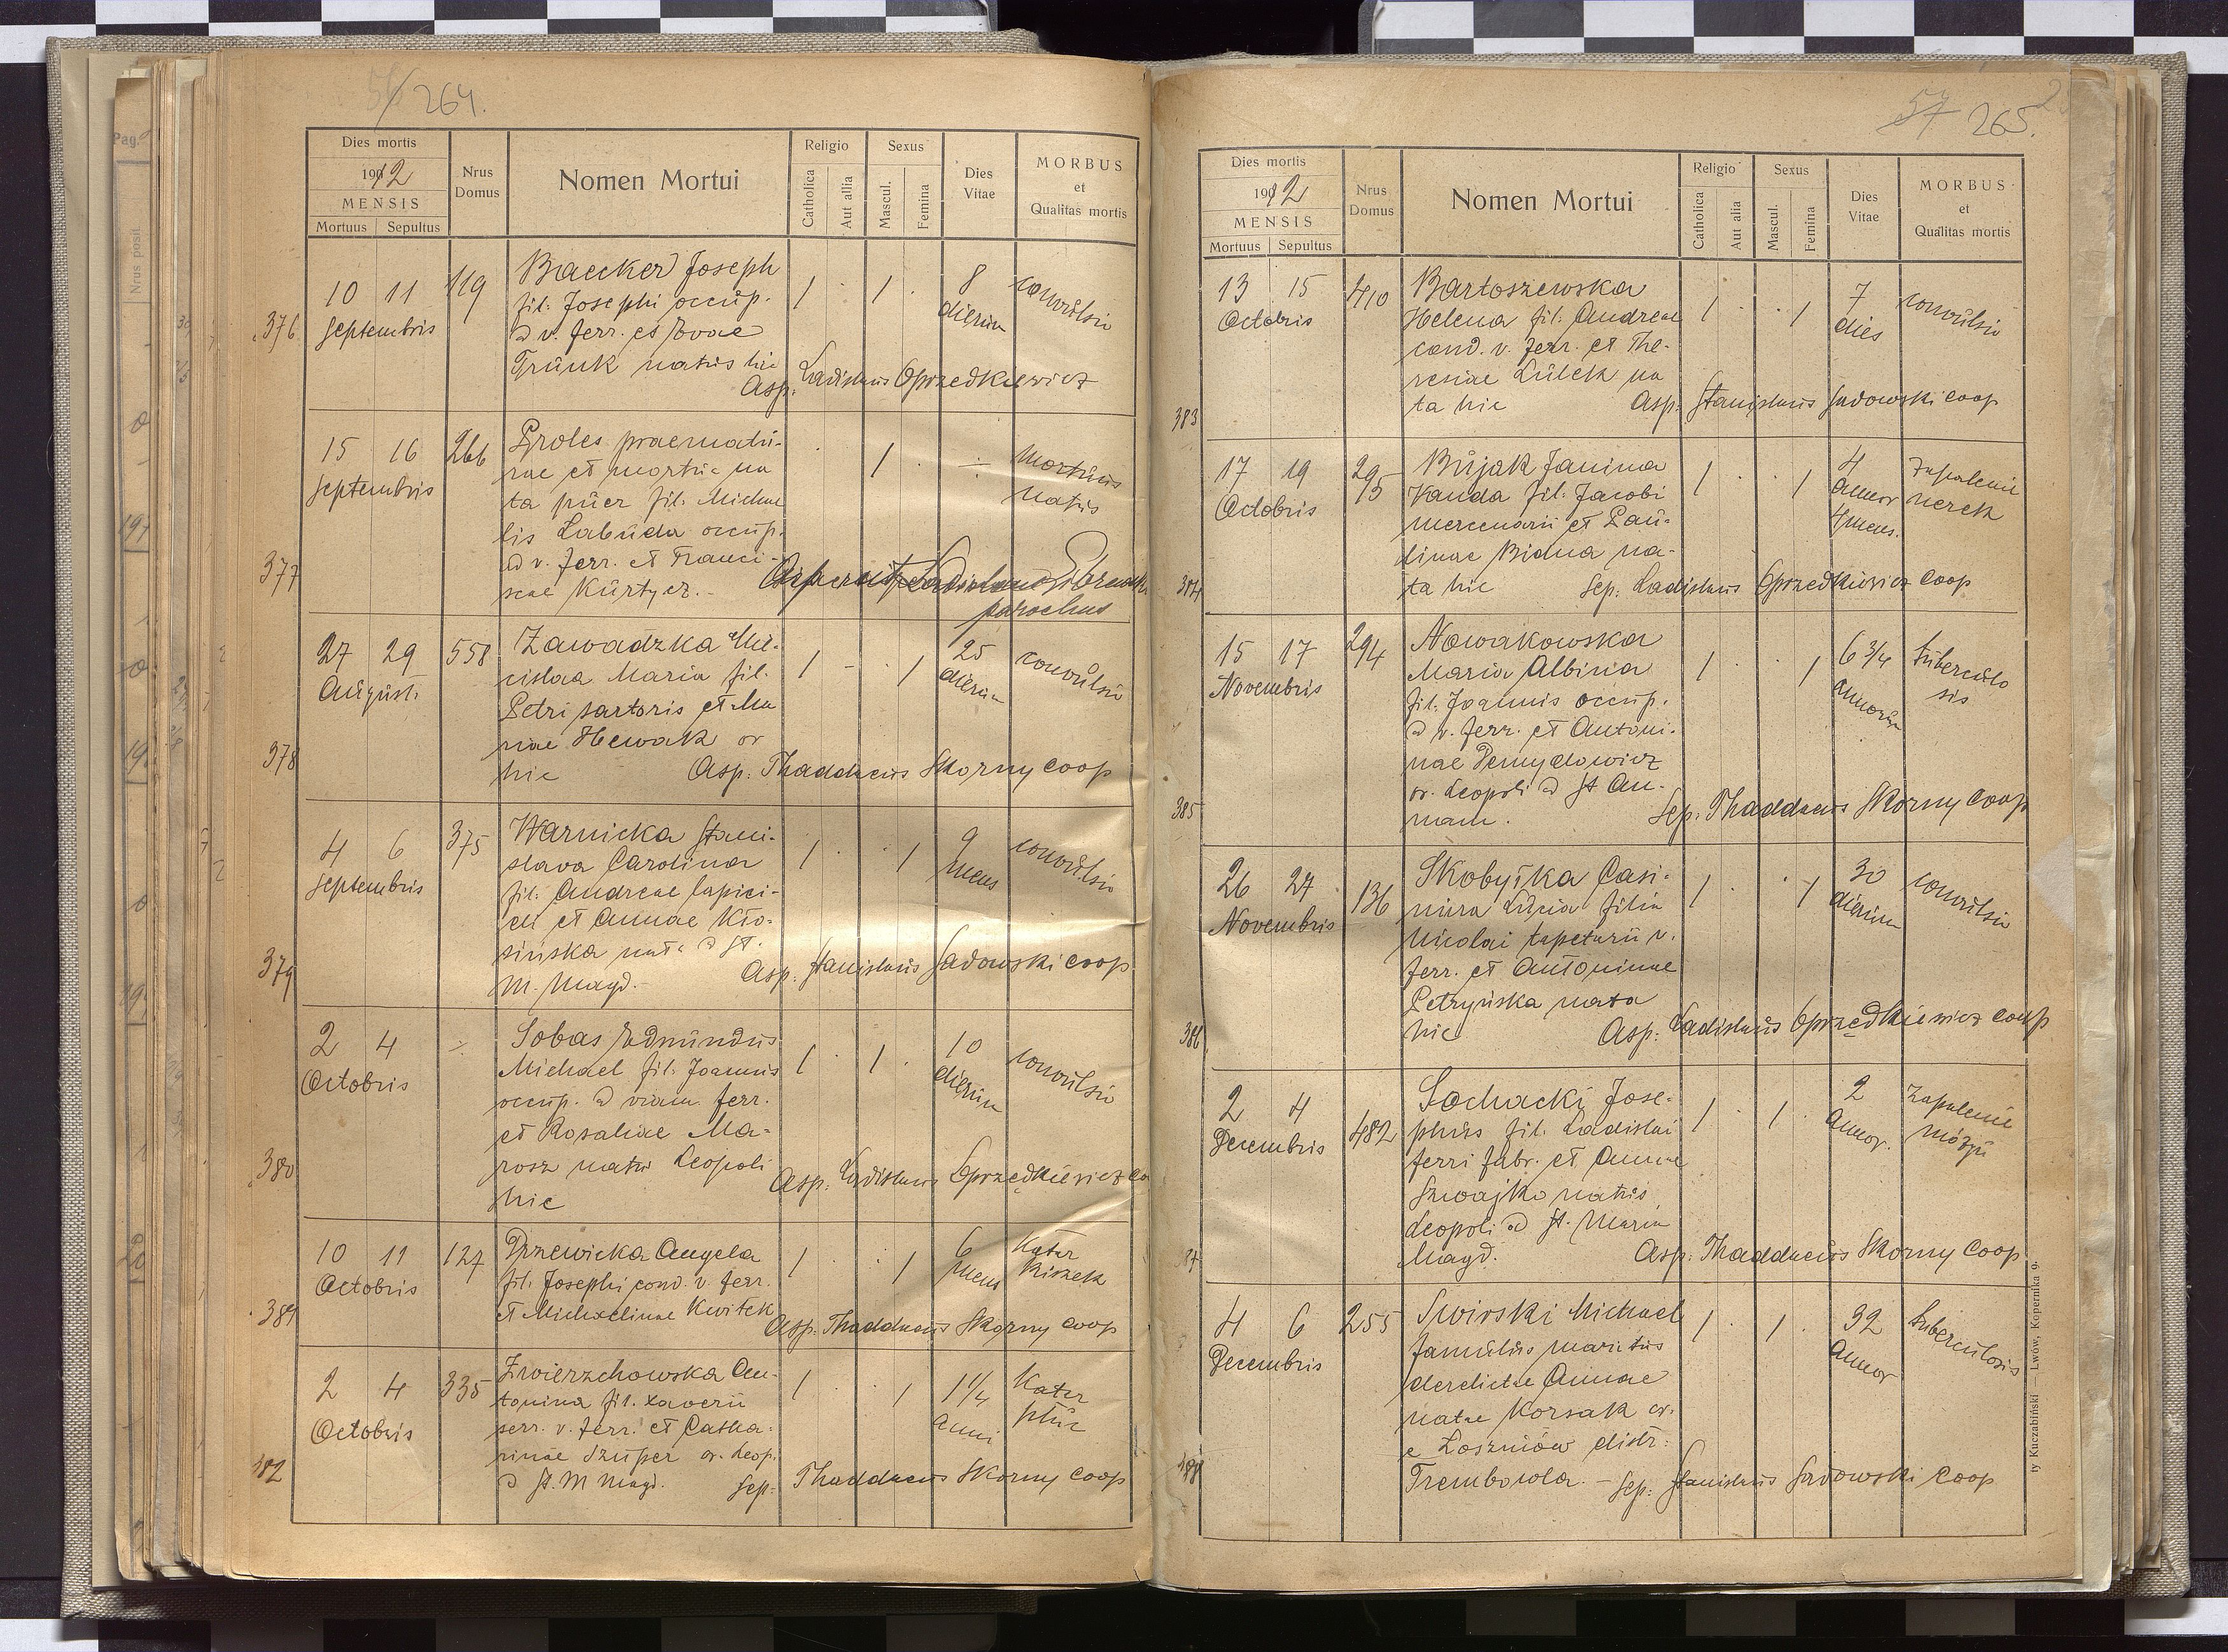 264.
Dies mortis
1912
MENSIS
Mortuus Sepultus
Nrus Domus
Nomen Mortui
Religio
Catholica
Aut allia
Sexus
Mascul.
Femina
Dies Vitae
MORBUS
et
Qualitas mortis
376
10 11 119
Septembris
Baecker Joseph
fil. Josephi occup.
a v. ferr. et Evae
Trunk natus hic
1 1
8
dierum
convulsio
Asp. Ladislaus Oprzedkiewicz
377
15 16 266
Septembris
Proles praematu-
rae et mortua na
ta puer fil. Michae
lis Labuda occup.
ad v. ferr. et Franci-
scae Kurtyer.
1
Mortuus
natus
parochus
378
27 29 558
Augusti
Zawadzka
cislaa Maria fil.
Petri sartoris et Ma
riae Hewak or
hic
1 1
25
dierum
convulsio
Asp. Thaddaeus Skorny coop
379
4 6 375
Septembris
Warnicka Stani-
slava Carolina
fil. Andreae lapici-
et Annae Kło-
sińska nata a St.
M. Magd.
1 1
9
mens
convulsio
Asp. Stanislaus Sadowski coop
380
2 4
Octobris
Sobas Edmundus
Michael fil. Joannis
occup. a viam ferr.
et Rosaliae Ma-
rosz natus Leopoli
hic
1 1
10
dierum
convulsio
Asp. Ladislaus Oprzedkiewicz co
381
10 11 127
Octobris
Drzewicka Angela
fil. Josephi cond. v. ferr.
et Michaelinae Kwitek
1 1
6
mens
Katar
kiszek
Asp. Thaddaeus Skorny coop
382
2 4 335
Octobris
Zwierzchowska An-
tonina fil. Xaverii
serr. v. ferr. et Catha-
rinae Szuper or. Leop.
a St. M Magd.
1 1
1 1/4
anni
Katar
Sep. Thaddaeus Skorny coop
57 265.
Dies mortis
1912
MENSIS
Mortuus Sepultus
Nrus Domus
Nomen Mortui
Religio
Catholica
Aut alia
Sexus
Mascul.
Femina
Dies Vitae
MORBUS
et
Qualitas mortis
383
13 15 410
Octobris
Bartoszewska
Helena fil. Andreae
cond. v. ferr. et The-
resiae Lulek na
ta hic
1 1
7
dies
convulsio
Asp. Stanislaus Sadowski coop
384
17 19 295
Octobris
Bujak Janina
Vanda fil. Jacobi
mercenarii et Pau-
linae Biana na-
ta hic
1 1
4
annor
4 mens.
Zapalenie
nerek
Sep. Ladislaus Oprzedkiewicz coop
385
15 17 294
Novembris
Nowakowska
Maria Albina
fil. Joannis occup.
a v. ferr. et Antoni-
nae
or. Leopoli a St An-
nam.
1 1
6 3/4
annorum
tuberculo
sis
Sep. Thaddaeus Skorny coop
386
26 27 136
Novembris
Skobyłka Casi-
mira Lucia filia
Nicolai tapetarii v.
ferr. et Antoninae
Petryńska nata
hic
1 1
30
dierum
convulsio
Asp. Ladislaus Oprzedkiewicz coop
2 4 482
Decembris
Sochacki Jose-
phus fil. Ladislai
ferri fabr. et Annae
Szwajko natus
Leopoli a St. Maria
Magd.
1 1
2
annor.
Zapalenie
mózgu
Asp. Thaddaeus Skorny coop
388
4 6 255
Decembris
Swirski Michael
famulus maritus
derelictae Annae
natae Korsak or.
e Łoszniów distr.
Trembowla.
1 1
32
annor
tuberculosis
Sep. Stanislaus Sadowski coop
ty Kuczabiński — Lwów, Kopernika 9.